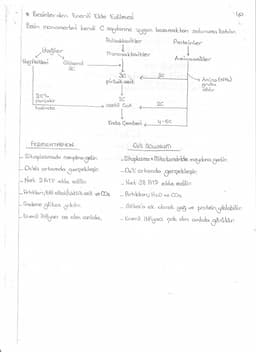 * Besinlerden Enerji Elde Edilmesi
Besin monomerleri kendi C sayılarına uygun basamaktan solunuma katılır.
Polisakkaritler
Proteinler
Yağlar
Monosakkaritler
Aminoasitler
Yağ Asitleri
Gliserol
3C
3C
pirüvik asit
3C
Amino (NH₂)
grubu
2C
asetil CoA
2C
Krebs Çemberi
4-5C
FERMENTASYON
- Sitoplazmada meydana gelir.
- O₂'siz ortamda gerçekleşir.
- Net 2 ATP elde edilir.
- Artıkları; Etil alkol/laktik asit ve CO₂
- Sadece glikoz yıkılır.
- Enerji ihtiyacı az olan
O₂'li SOLUNUM
- Sitoplazma + Mitokondride meydana gelir.
- O₂'li ortamda gerçekleşir.
- Net 38 ATP elde edilir.
- Artıkları; H₂O ve CO₂
- Glikoz'a ek olarak yağ ve protein yıkılabilir.
- Enerji ihtiyacı çok olan canlılarda görülür.